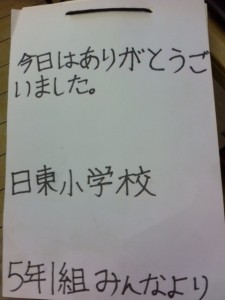 今日はありがとうござ
いました。
日東小学校
5年1組みんなより